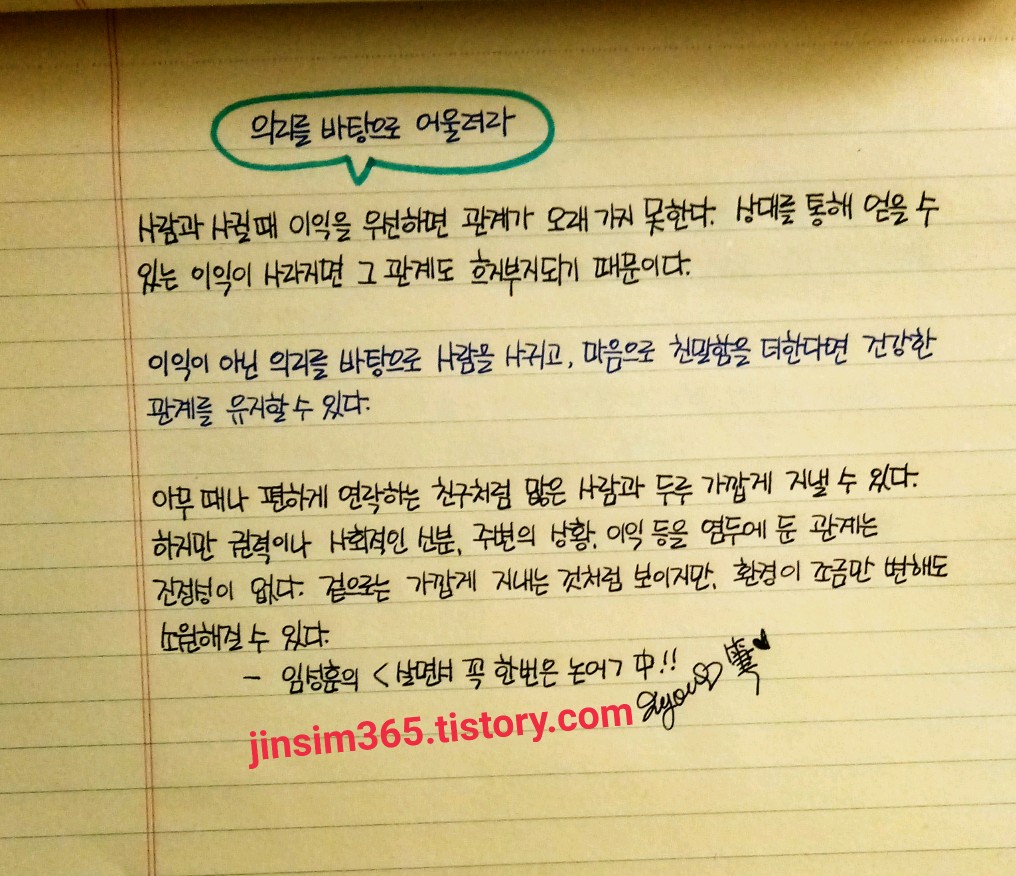 의리를 바탕으로 어울려라
사람과 사귈 때 이익을 우선하면 관계가 오래 가지 못한다. 상대를 통해 얻을 수
있는 이익이 사라지면 그 관계도 흐지부지되기 때문이다.
이익이 아닌 의리를 바탕으로 사람을 사귀고, 마음으로 친밀함을 더한다면 건강한
관계를 유지할 수 있다.
아무 때나 편하게 연락하는 친구처럼 많은 사람과 두루 가깝게 지낼 수 있다.
하지만 권력이나 사회적인 신분, 주변의 상황, 이익 등을 염두에 둔 관계는
진정성이 없다. 겉으로는 가깝게 지내는 것처럼 보이지만, 환경이 조금만 변해도
소원해질 수 있다.
- 임성훈의 <살면서 꼭 한번은 논어> 中!!
jinsim365.tistory.com